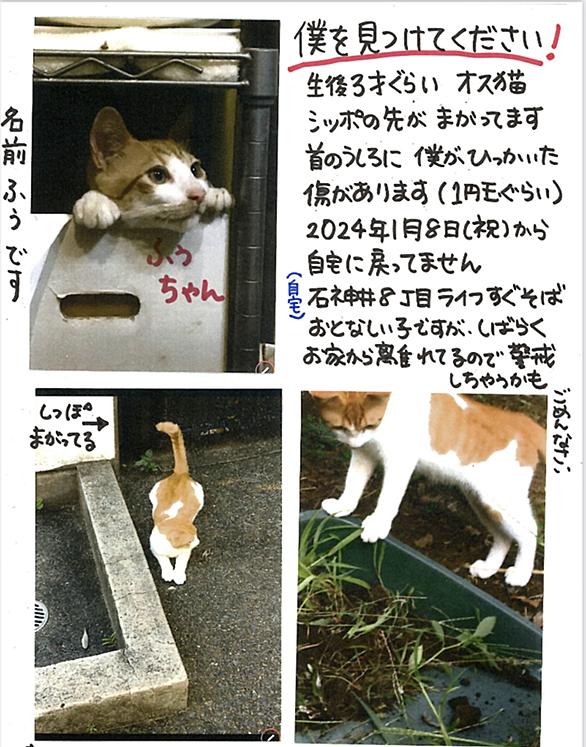 僕を見つけてください!
生後3才ぐらい オス猫
シッポの先が まがってます
首のうしろに 僕が、ひっかいた
傷があります(1円玉ぐらい)
2024年1月8日(祝)から
自宅に戻ってません
(自宅)
石神井8丁目ライフすぐそば
おとなしい子ですが、しばらく
お家から離れてるので 警戒
しちゃうかも
ごめんなさい
名前 ふぅ です
ふぅ
ちゃん
しっぽ
まがってる→